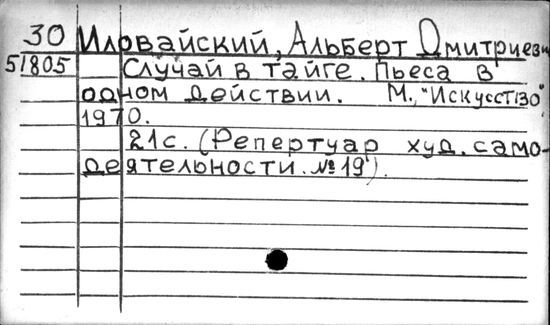 30 Иловайский, Альберт Дмитриевич
51805 Случай в тайге. Пьеса в
одном действии. М., "Искусство"
1970.
21с. (Репертуар худ. само-
деятельности. №19).